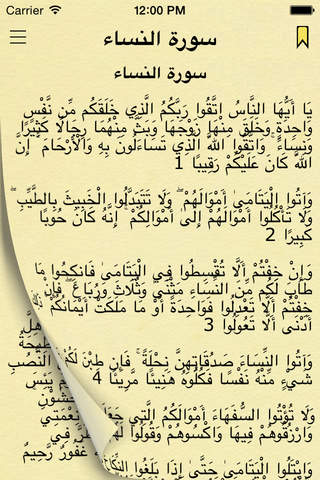 Carrier 12:00 PM
سورة النساء
سورة النساء
يَا أَيُّهَا النَّاسُ اتَّقُوا رَبَّكُمُ الَّذِي خَلَقَكُم مِّن نَّفْسٍ
وَاحِدَةٍ وَخَلَقَ مِنْهَا زَوْجَهَا وَبَثَّ مِنْهُمَا رِجَالًا كَثِيرًا
وَنِسَاءً ۚ وَاتَّقُوا اللَّهَ الَّذِي تَسَاءَلُونَ بِهِ وَالْأَرْحَامَ ۚ إِنَّ
اللَّهَ كَانَ عَلَيْكُمْ رَقِيبًا 1
وَآتُوا الْيَتَامَىٰ أَمْوَالَهُمْ ۖ وَلَا تَتَبَدَّلُوا الْخَبِيثَ بِالطَّيِّبِ ۖ
وَلَا تَأْكُلُوا أَمْوَالَهُمْ إِلَىٰ أَمْوَالِكُمْ ۚ إِنَّهُ كَانَ حُوبًا
كَبِيرًا 2
وَإِنْ خِفْتُمْ أَلَّا تُقْسِطُوا فِي الْيَتَامَىٰ فَانكِحُوا مَا
طَابَ لَكُم مِّنَ النِّسَاءِ مَثْنَىٰ وَثُلَاثَ وَرُبَاعَ ۖ فَإِنْ
خِفْتُمْ أَلَّا تَعْدِلُوا فَوَاحِدَةً أَوْ مَا مَلَكَتْ أَيْمَانُكُمْ ۚ ذَٰلِكَ
أَدْنَىٰ أَلَّا تَعُولُوا 3
وَآتُوا النِّسَاءَ صَدُقَاتِهِنَّ نِحْلَةً ۚ فَإِن طِبْنَ لَكُمْ النُّصُبِ
شَيْءٍ مِّنْهُ نَفْسًا فَكُلُوهُ هَنِيئًا مَّرِيئًا 4 يَئِسَ
وَلَا تُؤْتُوا السُّفَهَاءَ أَمْوَالَكُمُ الَّتِي جَعَلَ نِعْمَتِي
وَارْزُقُوهُمْ فِيهَا وَاكْسُوهُمْ وَقُولُوا لَهُمْ فِي
غَفُورٌ رَّحِيمٌ
وَابْتَلُوا الْيَتَامَىٰ حَتَّىٰ إِذَا بَلَغُوا النِّكَاحَ